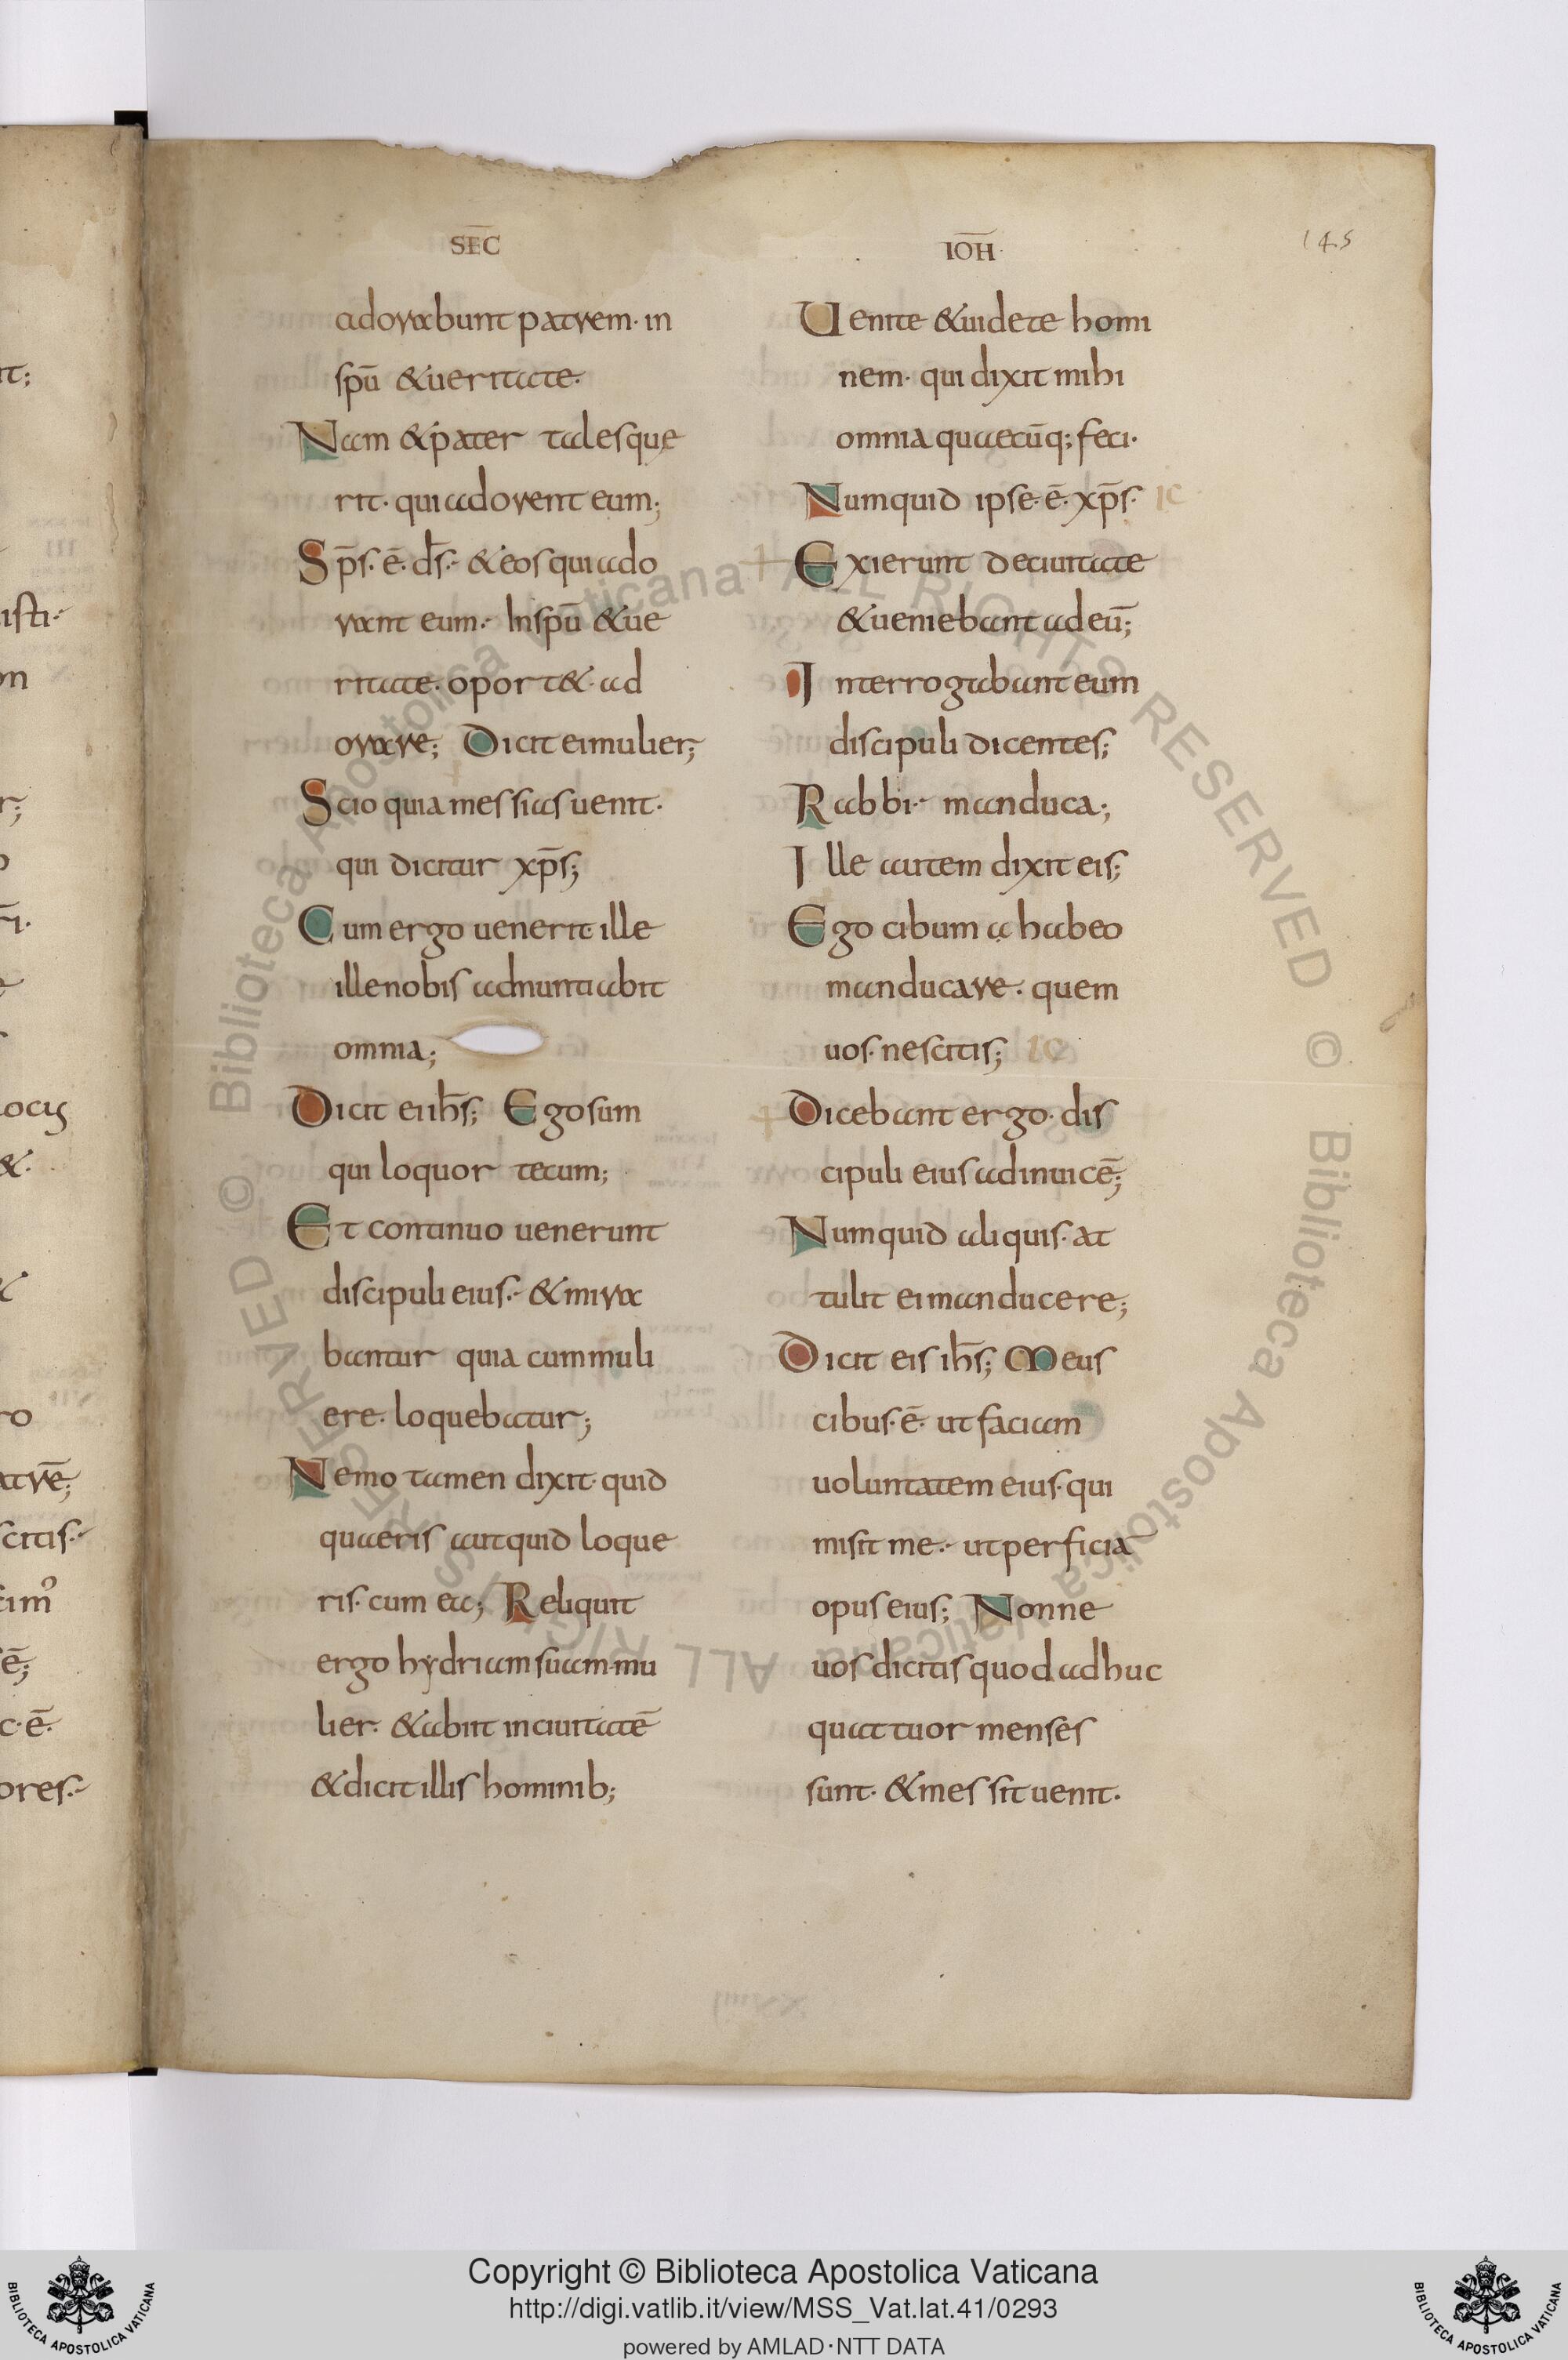 SEC̅
adorabunt patrem· in
spū &ueritate·
Nam &pater tales que
rit· qui adorent eum;
Sp̄s· ē· ds̄·- &eos qui ado
rant eum·- In spū &ue
ritate· oport& ad
orare; Dicit ei mulier;
Scio quia messias uenit·
qui dicitur xp̄s;
Cum ergo uenerit ille
ille nobis adnuntiabit
omnia;
Dicit ei ih̄s; Ego sum
qui loquor tecum;
Et continuo uenerunt
discipuli eius·- &mira
bantur quia cum muli
ere· loquebatur;
Nemo tamen dixit· quid
quaeris aut quid loque
ris· cum ea; Reliquit
ergo hydriam suam· mu
lier· &abiit in ciuitatē
&dicit illis hominib;
IOH̅·
145
Uenite &uidete homi
nem· qui dixit mihi
omnia quaecūq; feci·
Numquid ipse· ē· xp̄s·
Exierunt de ciuitate
&ueniebant ad eū;
Interrogabant eum
discipuli dicentes;
Rabbi·- manduca;
Ille autem dixit eis;
Ego cibum a habeo
manducare· quem
uos· nescitis;
Dicebant ergo· dis
cipuli eius ad inuicē;
Numquid aliquis· at
tulit ei manducere;
Dicit eis ih̄s; Meus
cibus· ē· ut faciam
uoluntatem eius· qui
misit me·- ut perficiā
opus eius; Nonne
uos dicitis quod adhuc
quattuor menses
sunt· &messit uenit·
Copyright © Biblioteca Apostolica Vaticana
http://digi.vatlib.it/view/MSS_Vat.lat.41/0293
powered by AMLAD·NTT DATA